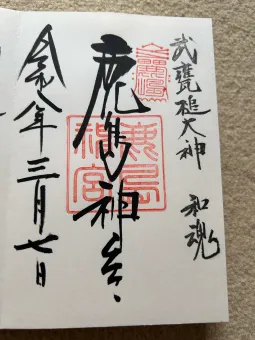 武甕槌大神 和魂
鹿島神宮
鹿島
神宮
令和八年三月七日